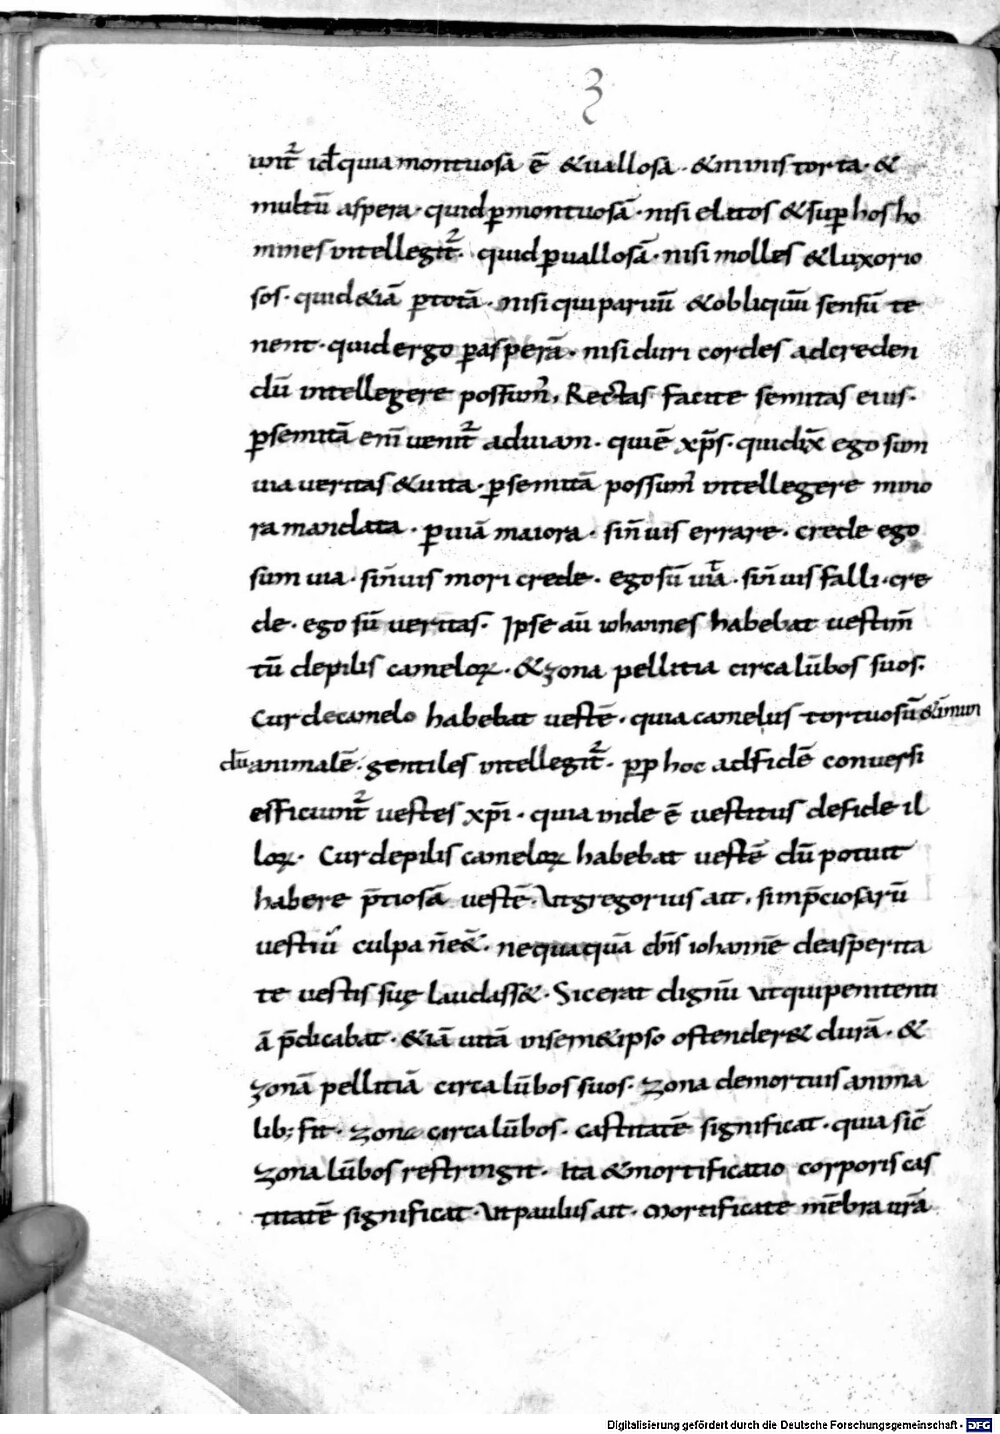 3
unt̄ idē quia montuosā ē &uallosa · &nimis torta · &
multū aspera · quid ꝑ montuosā · nisi elatos & suꝑ hos ho
mines intellegit̄ · quid ꝑ uallosā · nisi molles & luxorio
sos · quid &iā ꝑ tortā · nisi qui paruū & obliquū sensū te
nent · quid ergo ꝑ asperā · nisi duri cordes ad creden
dū intellegere possum̄ · Rectas facite semitas eius ·
ꝑ semitā enī uenit̄ ad uiam · qui ē xp̄s · qui dix̄ ego sum
uia ueritas & uita · ꝑ semitā possum̄ intellegere mino
ra mandata · ꝑ uiā maiora · sin̄ uis errare · crede ego
sum uia · sin̄ uis mori crede · ego sū uita · sin̄ uis falli · cre
de · ego sū ueritas · Ipse aū iohannes habebat uestim̄
tū de pilis cameloꝝ · & zona pellitia circa lūbos suos ·
Cur de camelo habebat uestē · quia camelus tortuosū & īmun
dū animal ē · gentiles intellegit̄ · ꝓp hoc ad fidē conuersi
efficiunt̄ uestes xp̄i · quia inde ē uestitus de fide il
loꝝ · Cur de pilis cameloꝝ habebat uestē dū potuit
habere p̄tiosā uestē · Ut gregorius ait · si in p̄ciosarū
uestiū culpa n̄ e&̄ · nequaquā dn̄s iohannē de asperita
te uestis suę laudass& · Sic erat dignū ut qui penitenti
ā p̄dicabat · &iā uitā in sem&ipso ostender& durā · &
zonā pellitiā circa lūbos suos · zona de mortuis anima
lib; fit · zona circa lūbos · castitatē significat · quia sic̄
zona lūbos restringit · Ita & mortificatio corporis cas
titatē significat · Ut paulus ait · Mortificate mēbra ur̄a
Digitalisierung gefördert durch die Deutsche Forschungsgemeinschaft - DFG